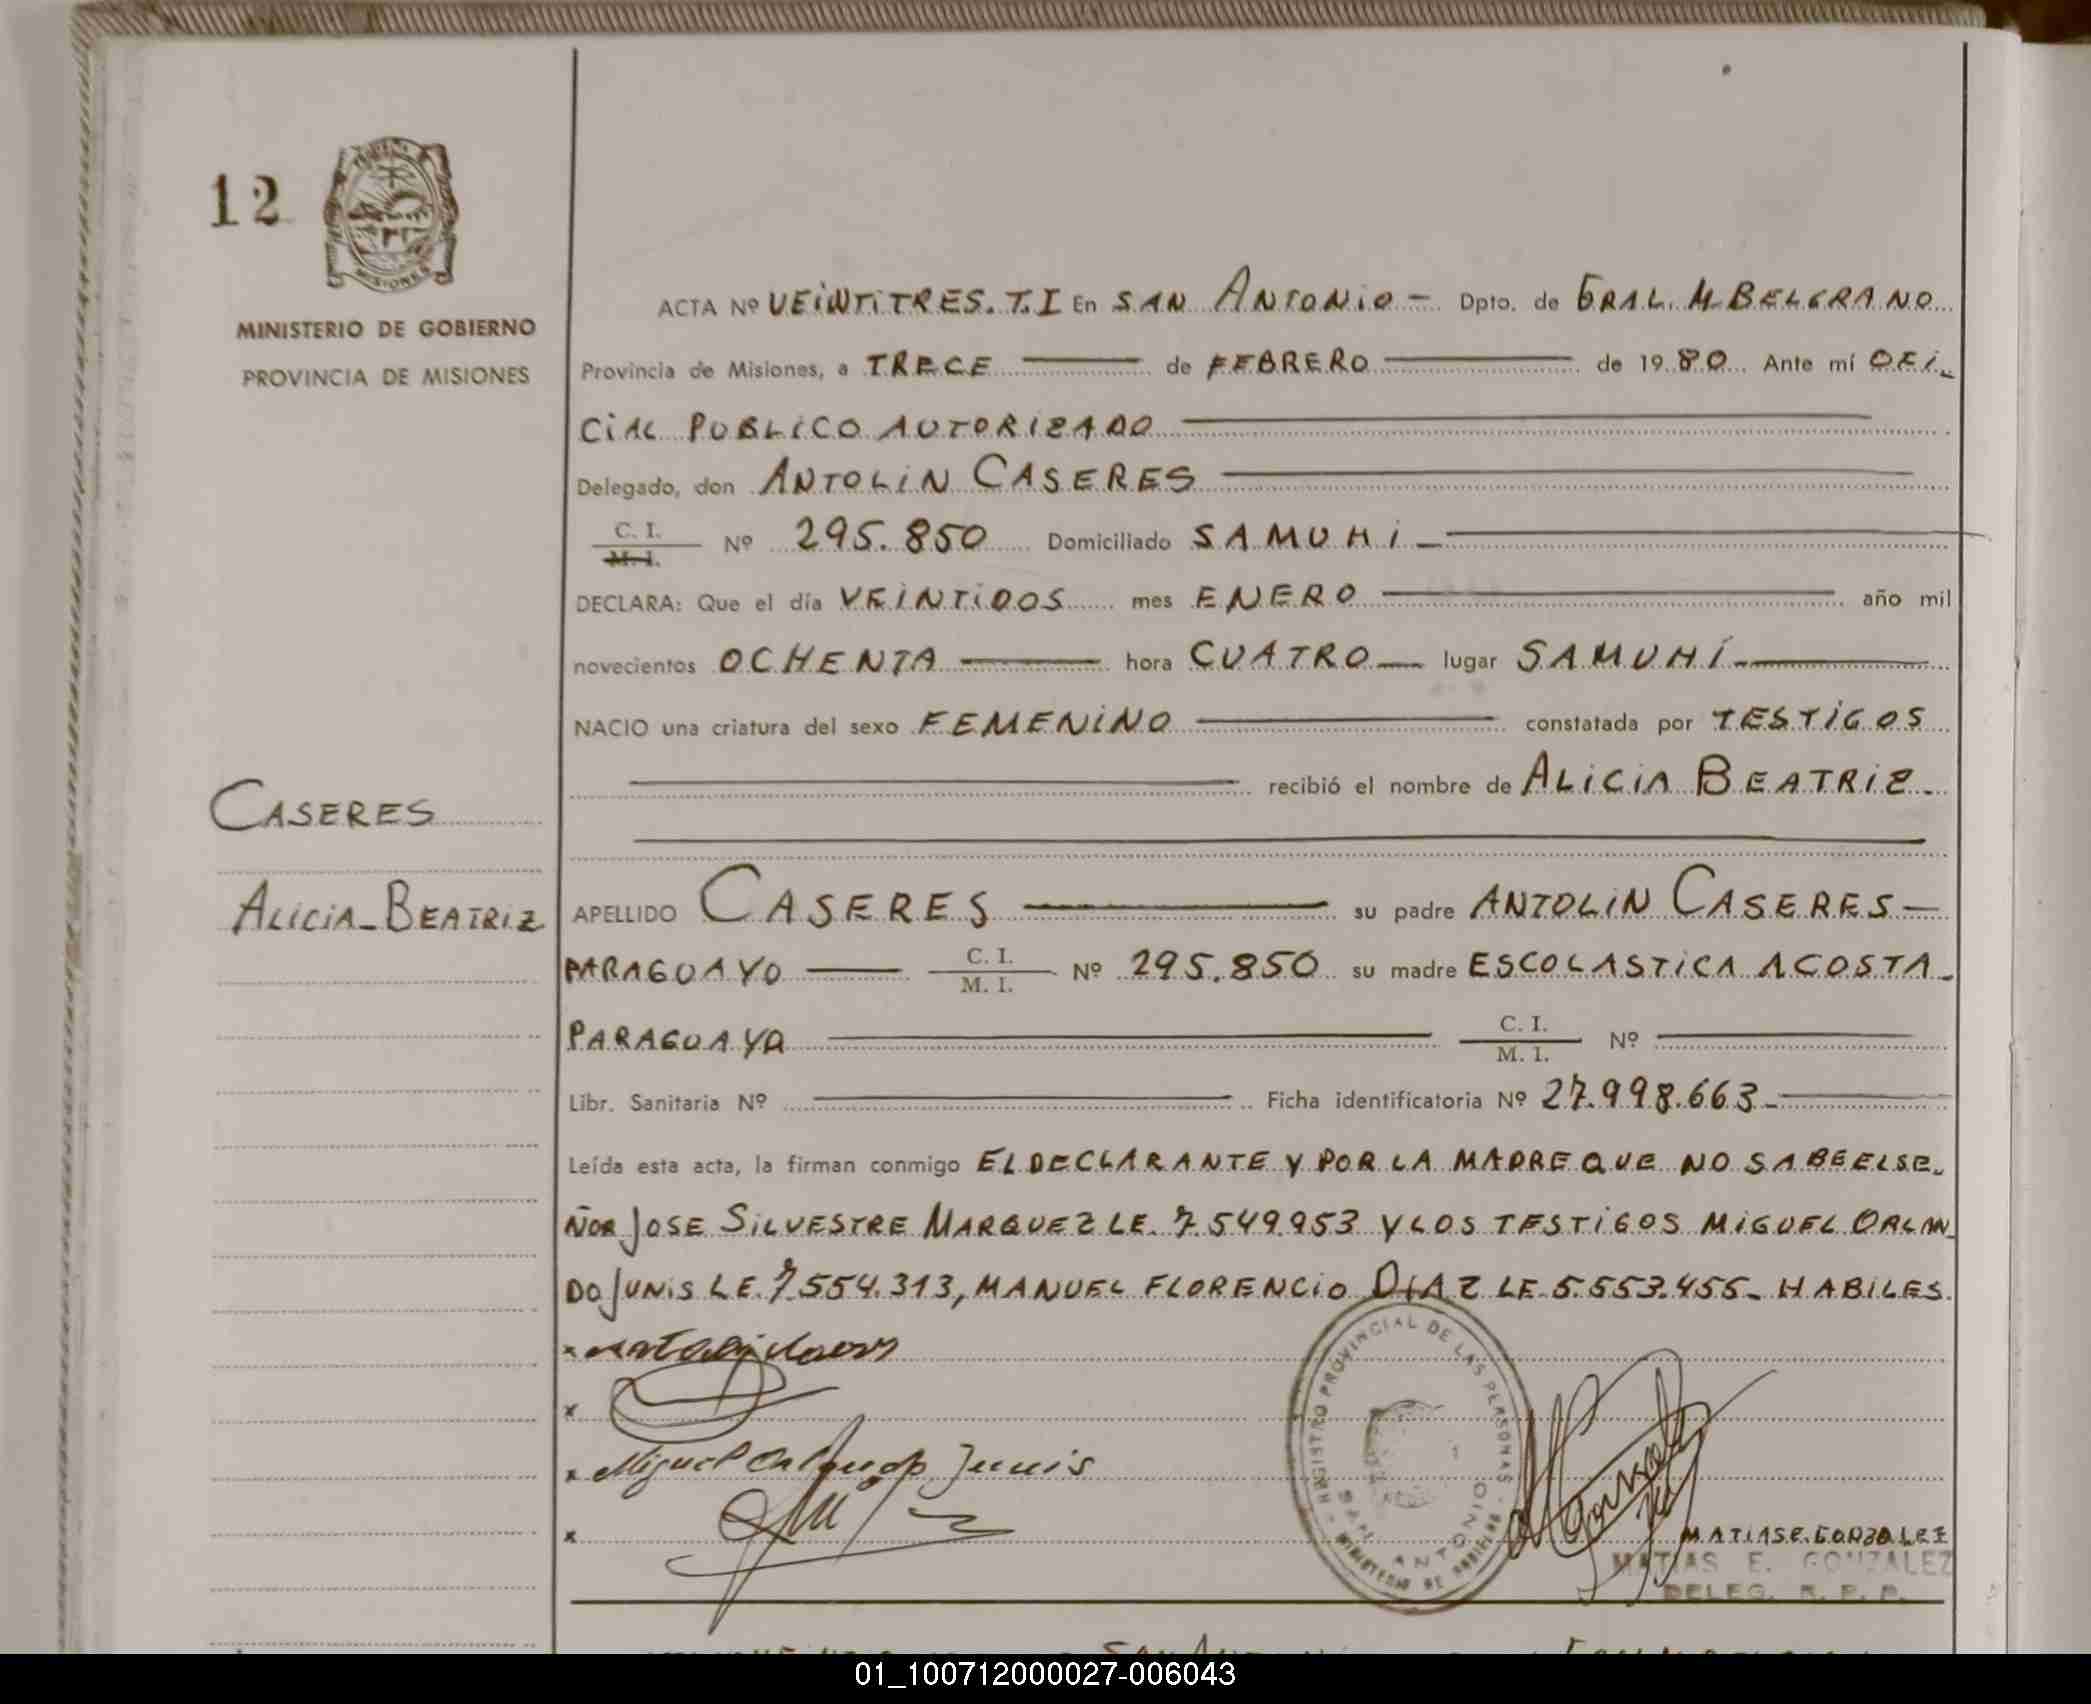 12
MISIONES
MINISTERIO DE GOBIERNO
PROVINCIA DE MISIONES
ACTA Nº VEINTITRES. T. I En SAN ANTONIO - Dpto. de GRAL. M. BELGRANO
Provincia de Misiones, a TRECE de FEBRERO de 1980 Ante mí OFI-
CIAL PUBLICO AUTORIZADO
Delegado, don ANTOLIN CASERES
C. I.
M. I.
Nº 295.850 Domiciliado SAMUHI -
DECLARA: Que el día VEINTIDOS mes ENERO año mil
novecientos OCHENTA hora CUATRO lugar SAMUHÍ -
NACIO una criatura del sexo FEMENINO constatada por TESTIGOS
recibió el nombre de ALICIA BEATRIZ -
CASERES
ALICIA-BEATRIZ
APELLIDO CASERES su padre ANTOLIN CASERES -
PARAGUAYO C. I. / M. I. Nº 295.850 su madre ESCOLASTICA ACOSTA -
PARAGUAYA C. I. / M. I. Nº
Libr. Sanitaria Nº Ficha identificatoria Nº 27.998.663 -
Leída esta acta, la firman conmigo EL DECLARANTE Y POR LA MADRE QUE NO SABE EL SE-
ÑOR JOSE SILVESTRE MARQUEZ LE. 7.549.953 Y LOS TESTIGOS MIGUEL ORLAN-
DO JUNIS LE. 7.554.313, MANUEL FLORENCIO DIAZ LE. 5.553.455 - HABILES.
Miguel Orlando Junis
REGISTRO PROVINCIAL DE LAS PERSONAS - MINISTERIO DE GOBIERNO
SAN ANTONIO
MATIAS E. GONZALEZ
MATIAS E. GONZALEZ
DELEG. R. P. P.
01_100712000027-006043